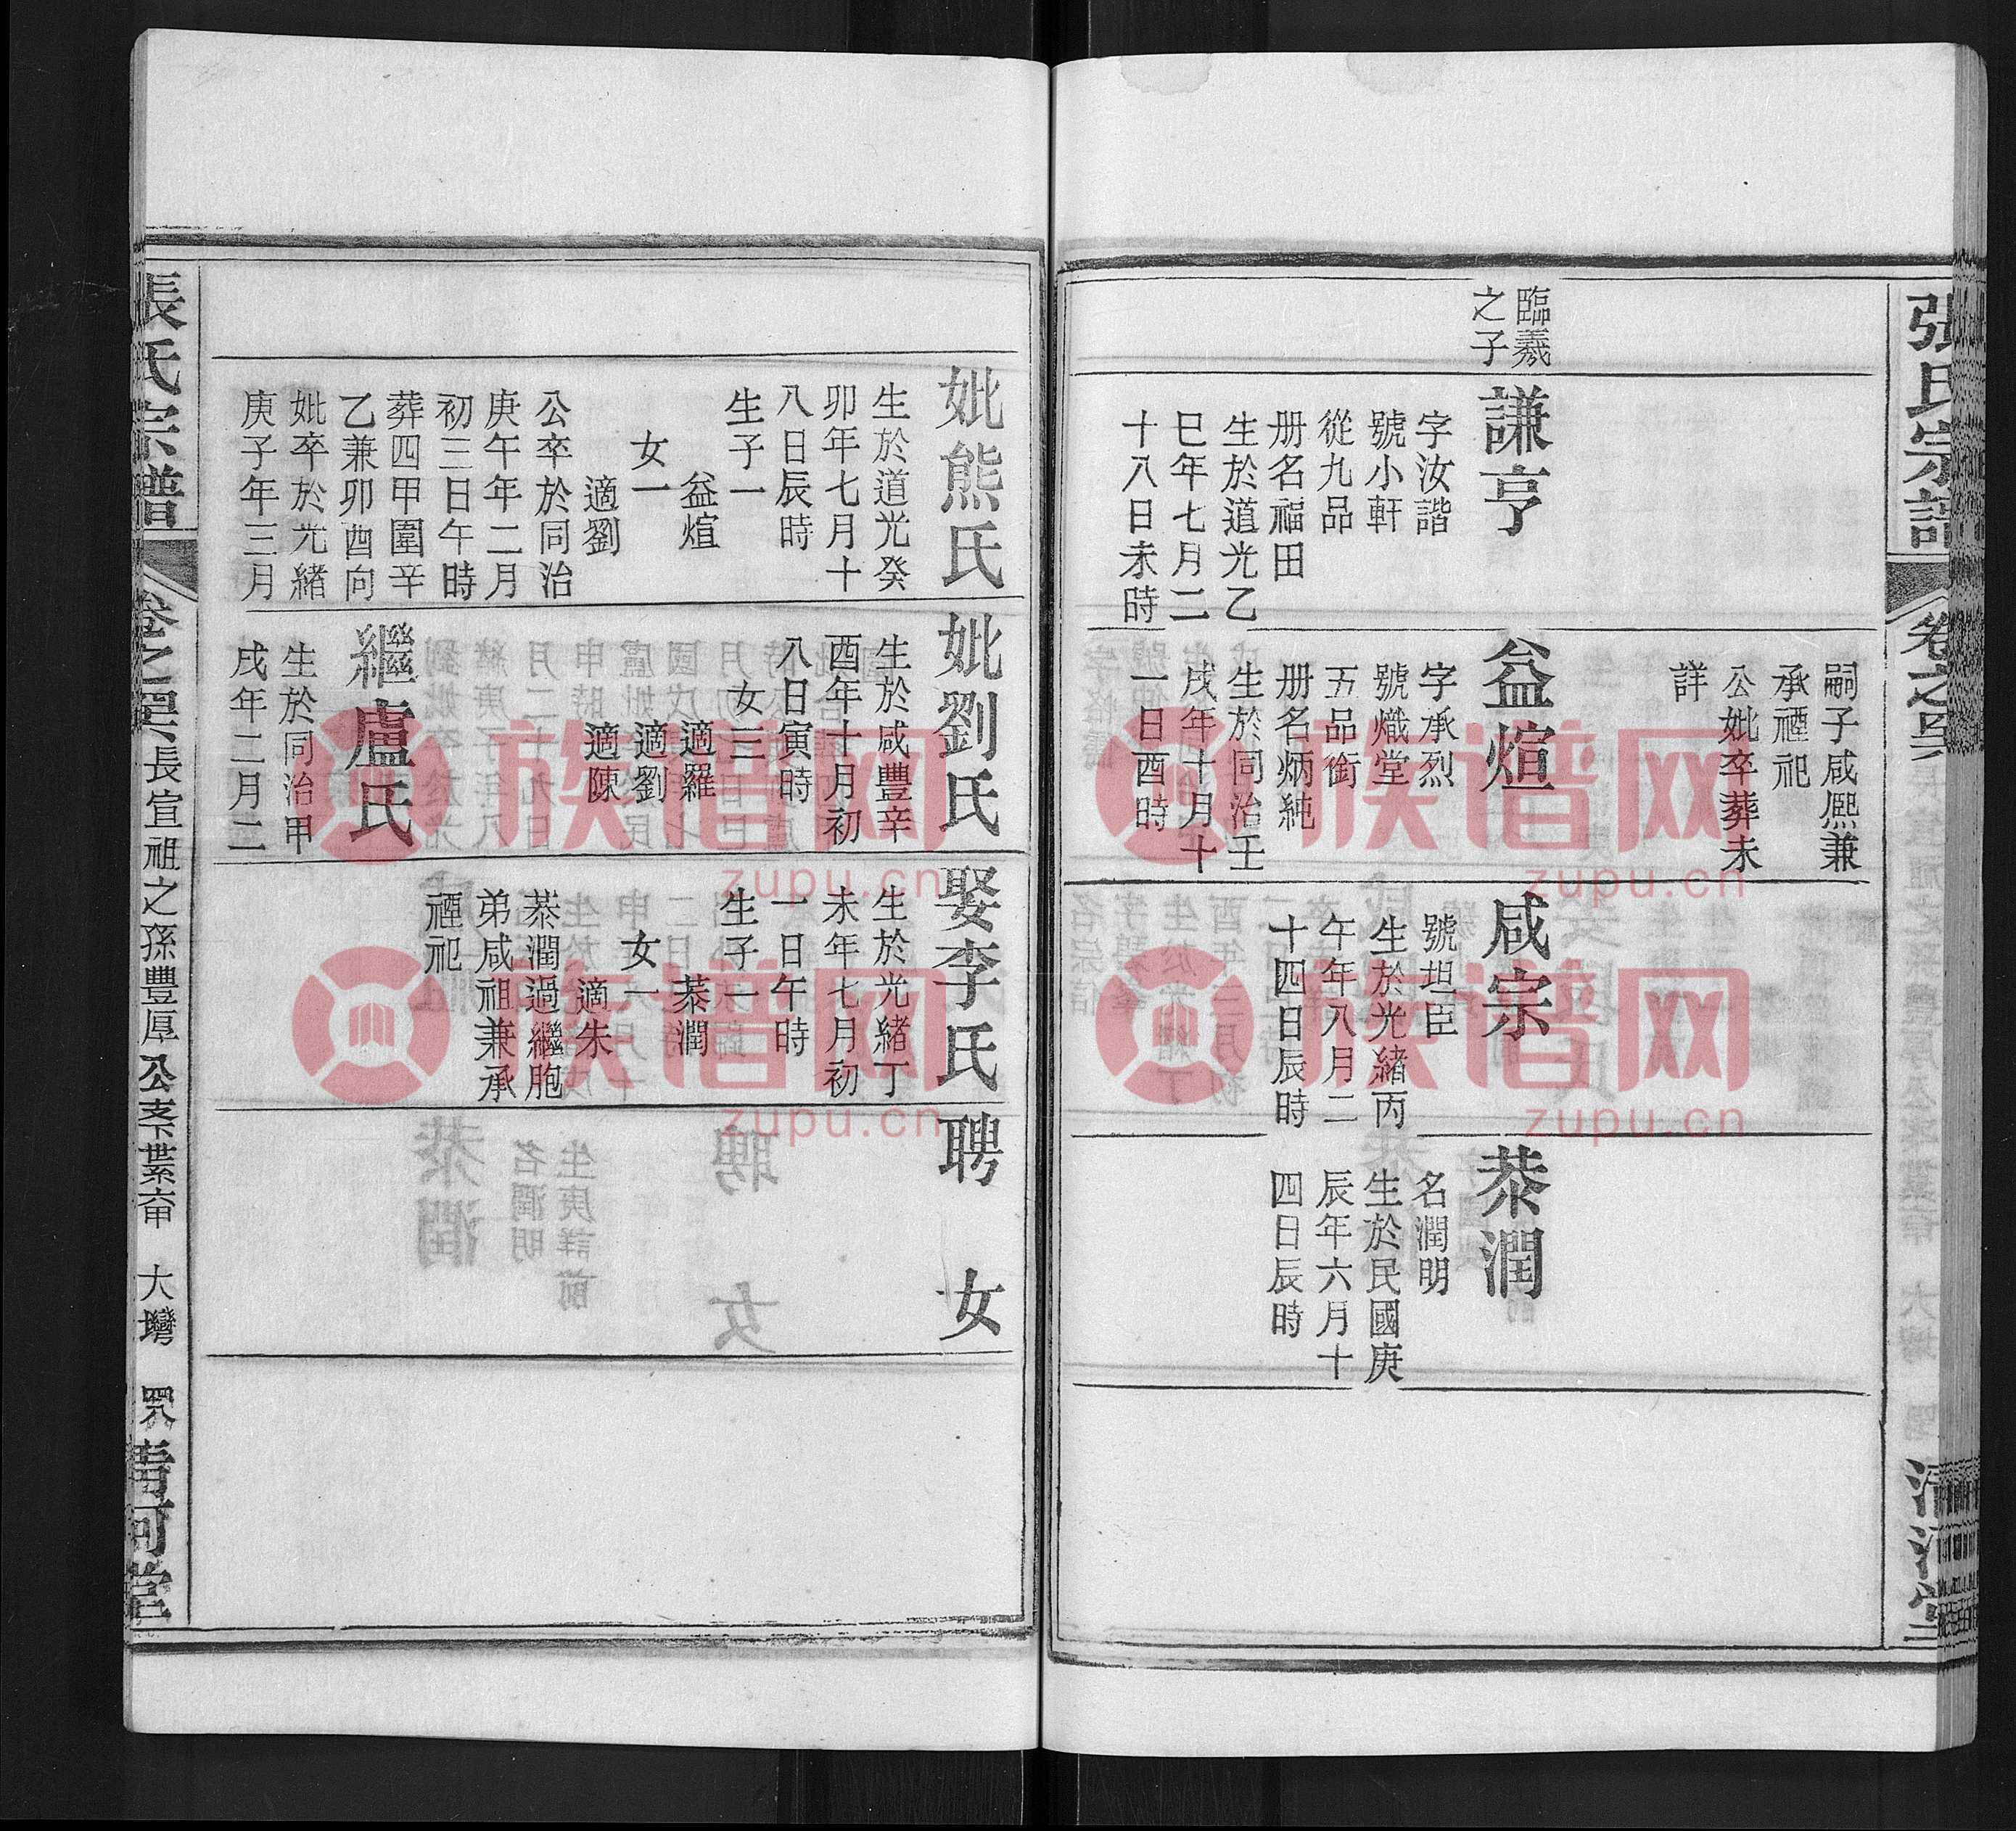 張氏宗譜
卷之
臨羲
之子
謙亨
字汝諧
號小軒
從九品
册名福田
生於道光乙
巳年七月二
十八日未時
嗣子咸熙兼
承禋祀
公妣卒葬未
詳
益煊
字承烈
號熾堂
五品銜
册名炳純
生於同治壬
戌年十月十
一日酉時
咸宗
號坦臣
生於光緒丙
午年八月二
十四日辰時
恭潤
名潤明
生於民國庚
辰年六月十
四日辰時
妣熊氏
生於道光癸
卯年七月十
八日辰時
生子一
益煊
女一
適劉
公卒於同治
庚午年二月
初三日午時
葬四甲圍辛
乙兼卯酉向
妣卒於光緒
庚子年三月
妣劉氏
生於咸豐辛
酉年十月初
八日寅時
女三
適羅
適劉
適陳
繼盧氏
生於同治甲
戌年二月二
娶李氏
生於光緒丁
未年七月初
一日午時
生子一
恭潤
女一
適朱
恭潤過繼胞
弟咸祖兼承
禋祀
聘
女
張氏宗譜
卷之
長宣祖之孫豐厚公支下
大灣
清河堂
族谱网
zupu.cn
族谱网
zupu.cn
族谱网
zupu.cn
族谱网
zupu.cn